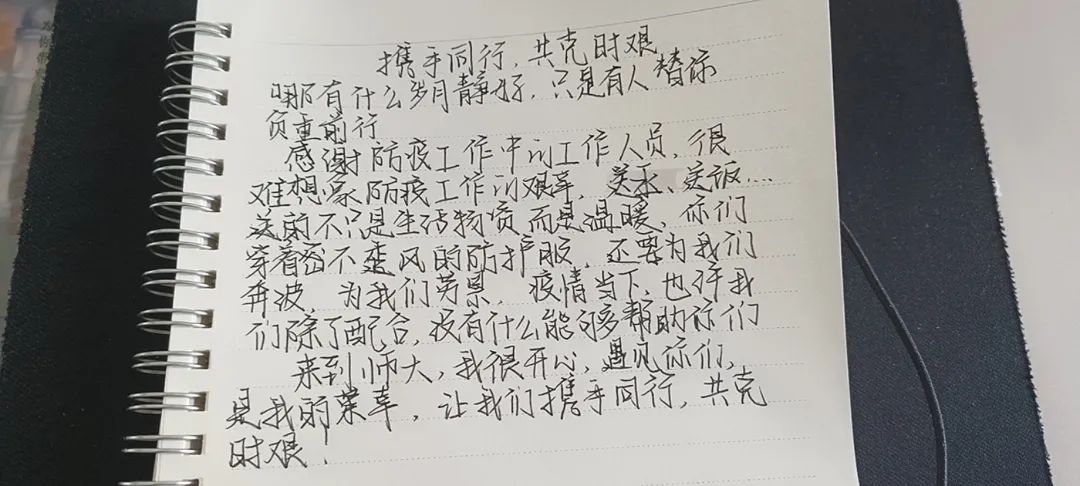 携手同行,共克时艰
哪有什么岁月静好,只是有人替你
负重前行
感谢防疫工作中的工作人员,很
难想象防疫工作的艰辛,送水、送饭…
送的不只是生活物资而是温暖,你们
穿着密不透风的防护服,还要为我们
奔波,为我们劳累,疫情当下,也许我
们除了配合,没有什么能够帮助你们
来到师大,我很开心,遇见你们,
是我的荣幸,让我们携手同行,共克
时艰!